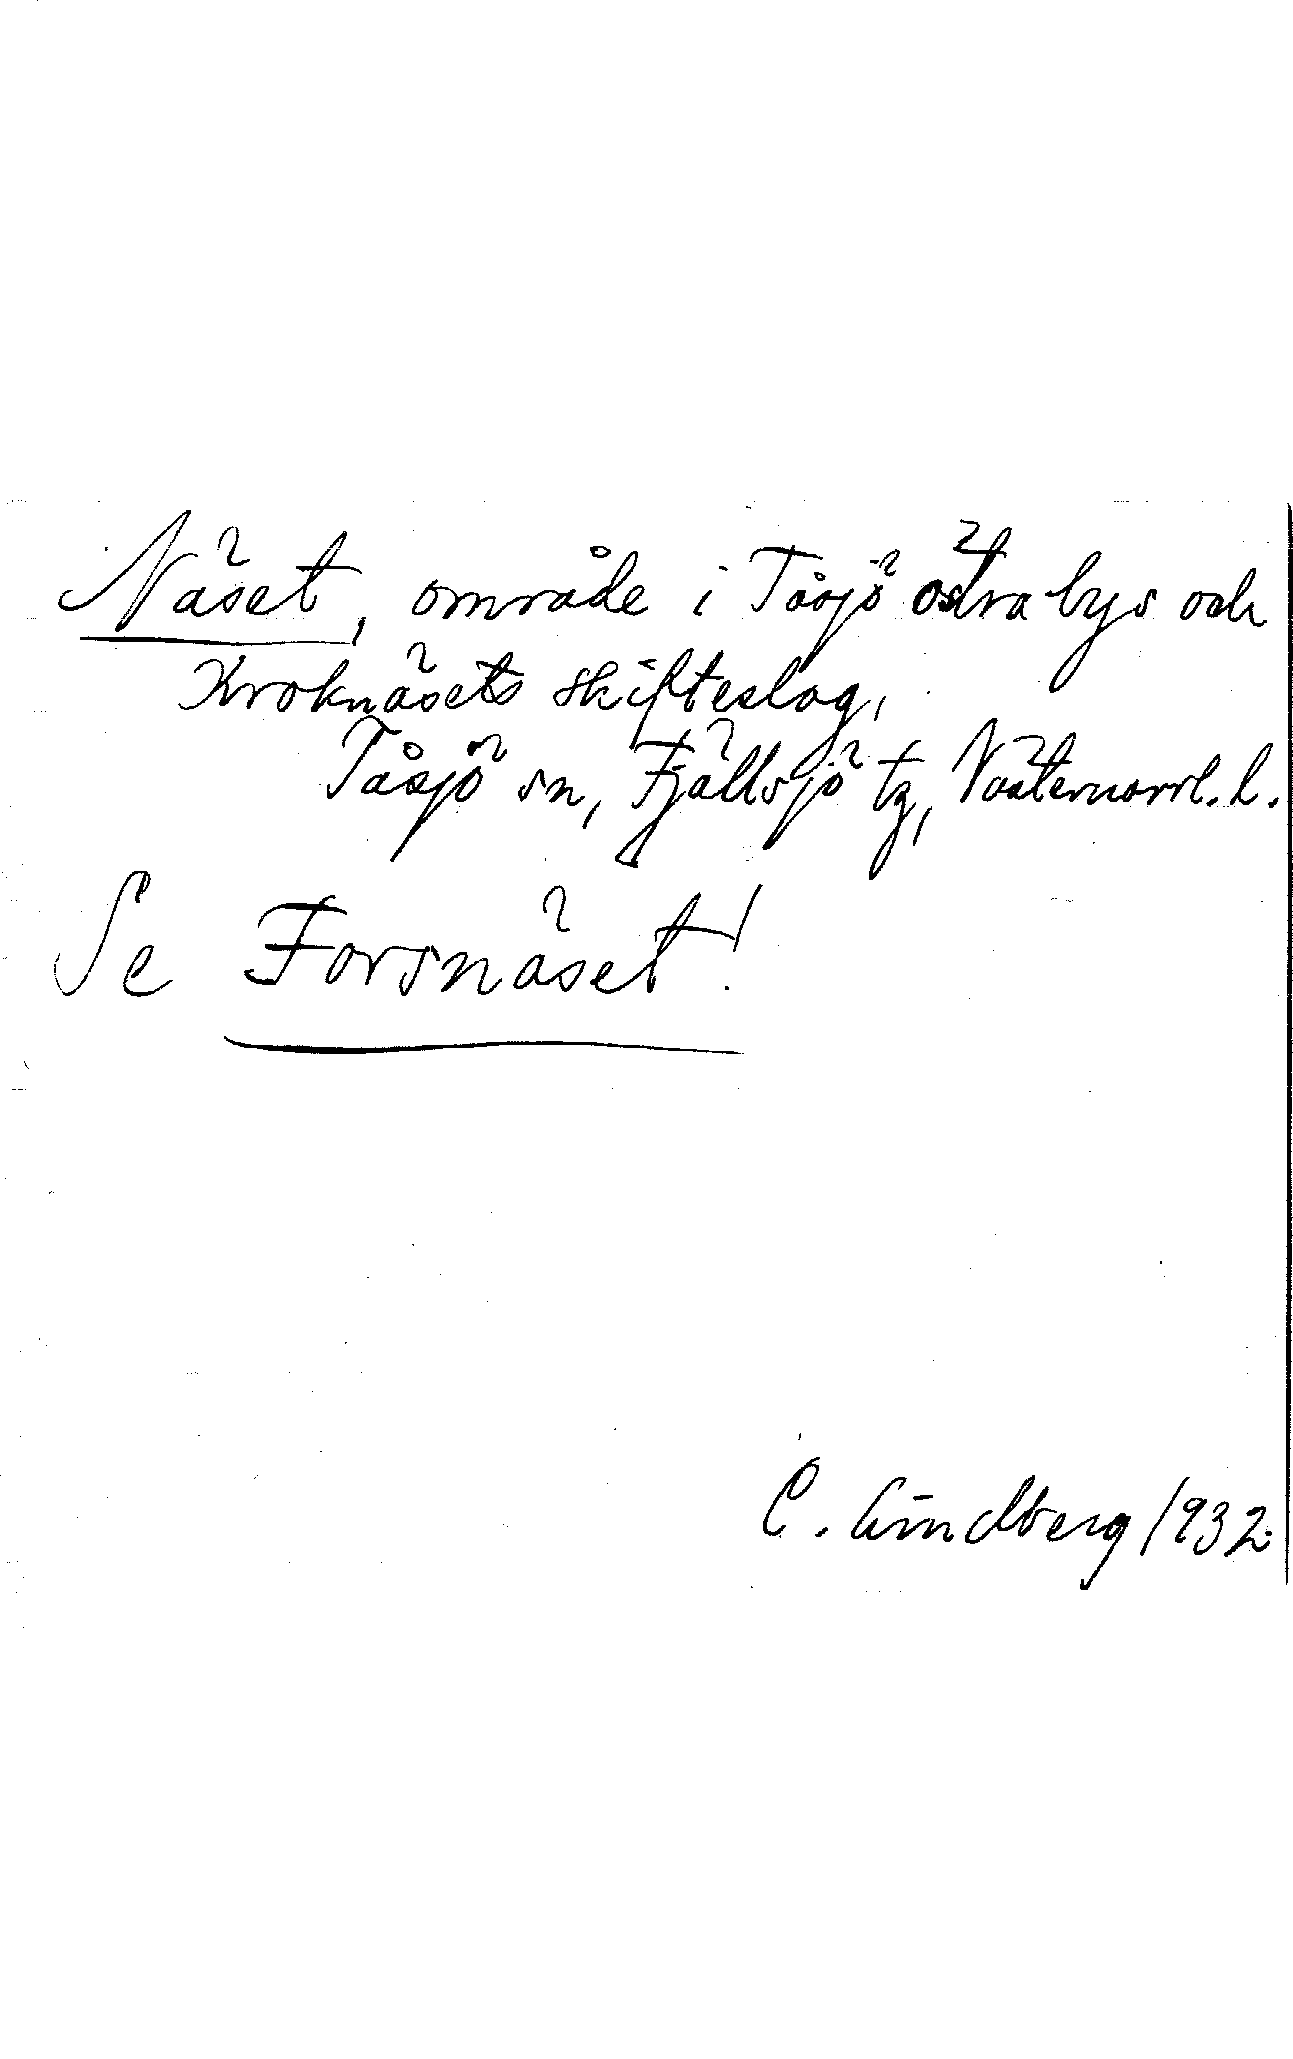 Näset, område i Tåsjö östra bys och
Kroknäsets skifteslag,
Tåsjö sn, Fjällsjö tg, Västernorrl. l.
Se Forsnäset!
C. Lindberg 1932.